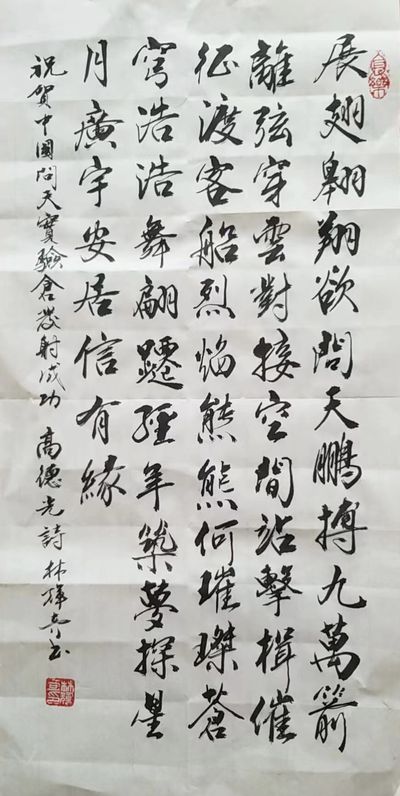 展翅翱翔欲問天鵬摶九萬箭
離弦穿雲對接空間站擊楫催
征渡客船烈焰熊熊何璀璨蒼
穹浩浩舞翩躚經年築夢探星
月廣宇安居信有緣
祝賀中國問天實驗倉發射成功 高德光詩 林